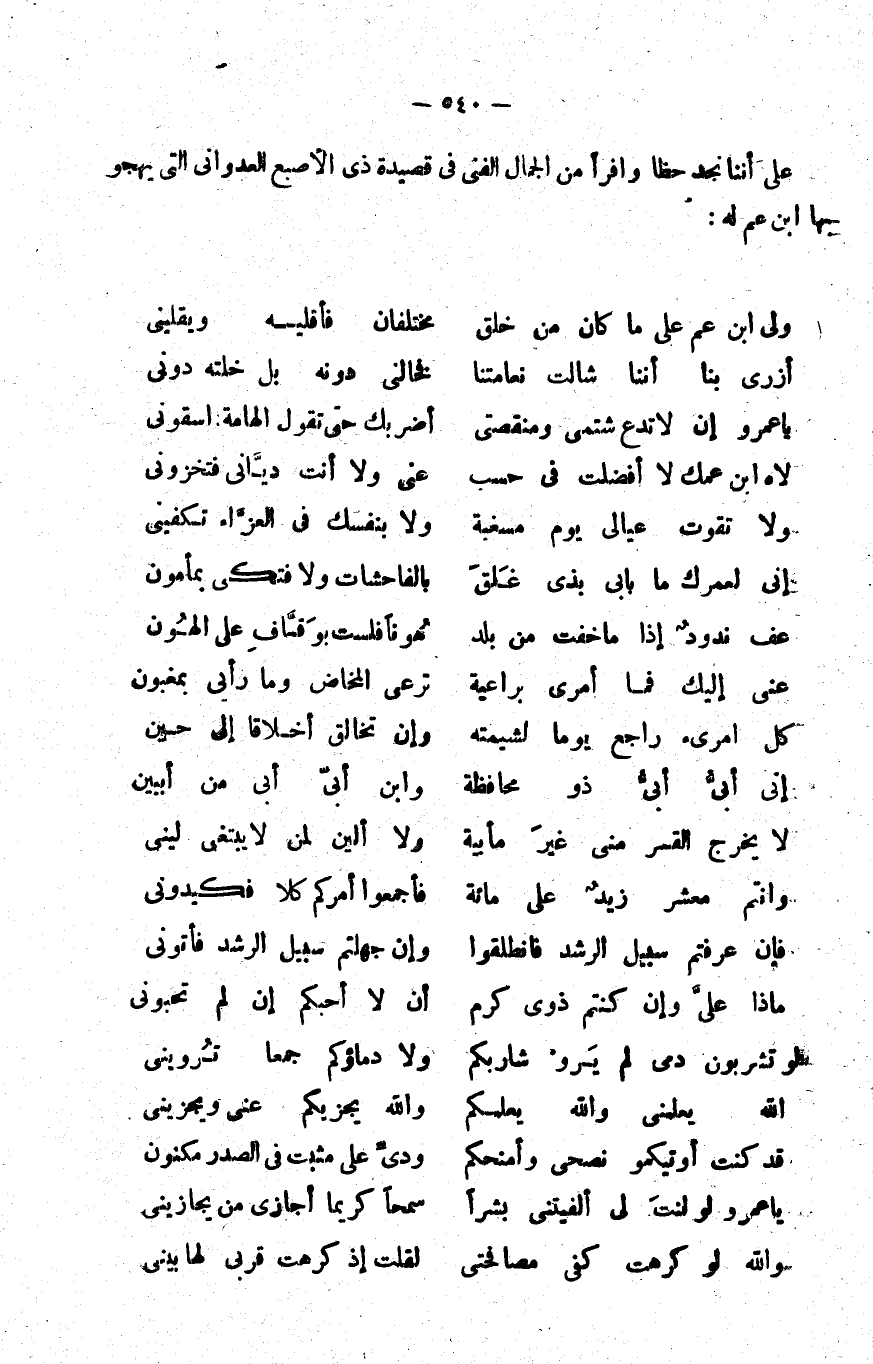 — ٥٤٠ —
على أننا نجد حظا وافرأ من الجمال الفنى فى قصيدة ذى الأصبع العدوانى التى يهجو
بيها ابن عم له :
ولى ابن عم على ما كان من خلق مختلفان فأقليـه ويقلينى
أزرى بنا أننا شالت نعامتنا فخالنى دونه بل خلته دونى
ياعمرو إن لاتدع شتمى ومنقصتى أضربك حتى تقول الهامة اسقونى
لاه ابن عمك لا أفضلت فى حسب عنى ولا أنت ديَّانى فتخزونى
ولا تقوت عيالى يوم مسغبة ولا بنفسك فى العزَّاء تكفينى
إنى لعمرك ما بابى بذى غَلق بالفاحشات ولا فتكى بمأمون
عف ندودٌ إذا ماخفت من بلد هُوناً فلست بوَقَّافٍ على الهُون
عنى إليك فما أمرى براعية ترعى المخاض وما رأيى بمغبون
كل امرىء راجع يوما لشيمته وإن تخالق أخلاقا إلى حين
إنى أبىٌّ أبىٌّ ذو محافظة وابن أبىّ أبى من أبيين
لا يخرج القسر منى غيرَ مأبية ولا ألين لمن لايبتغى لينى
وانتم معشر زيدٌ على مائة فأجمعوا أمركم كلا فكيدونى
فإن عرفتم سبيل الرشد فانطلقوا وإن جهلتم سبيل الرشد فأتونى
ماذا علىَّ وإن كنتم ذوى كرم أن لا أحبكم إن لم تحبونى
لو تشربون دمى لم يَرو شاربكم ولا دماؤكم جمعا تُروينى
الله يعلمنى والله يعلمكم والله يجزيكم عنى ويجزينى
قد كنت أوتيكمو نصحى وأمنحكم ودىَّ على مثبت فى الصدر مكنون
ياعمرو لو لنتَ لى ألفيتنى بشراً سمحاً كريما أجازى من يجازينى
والله لو كرهت كفى مصافحتى لقلت إذ كرهت قربى لها بينى